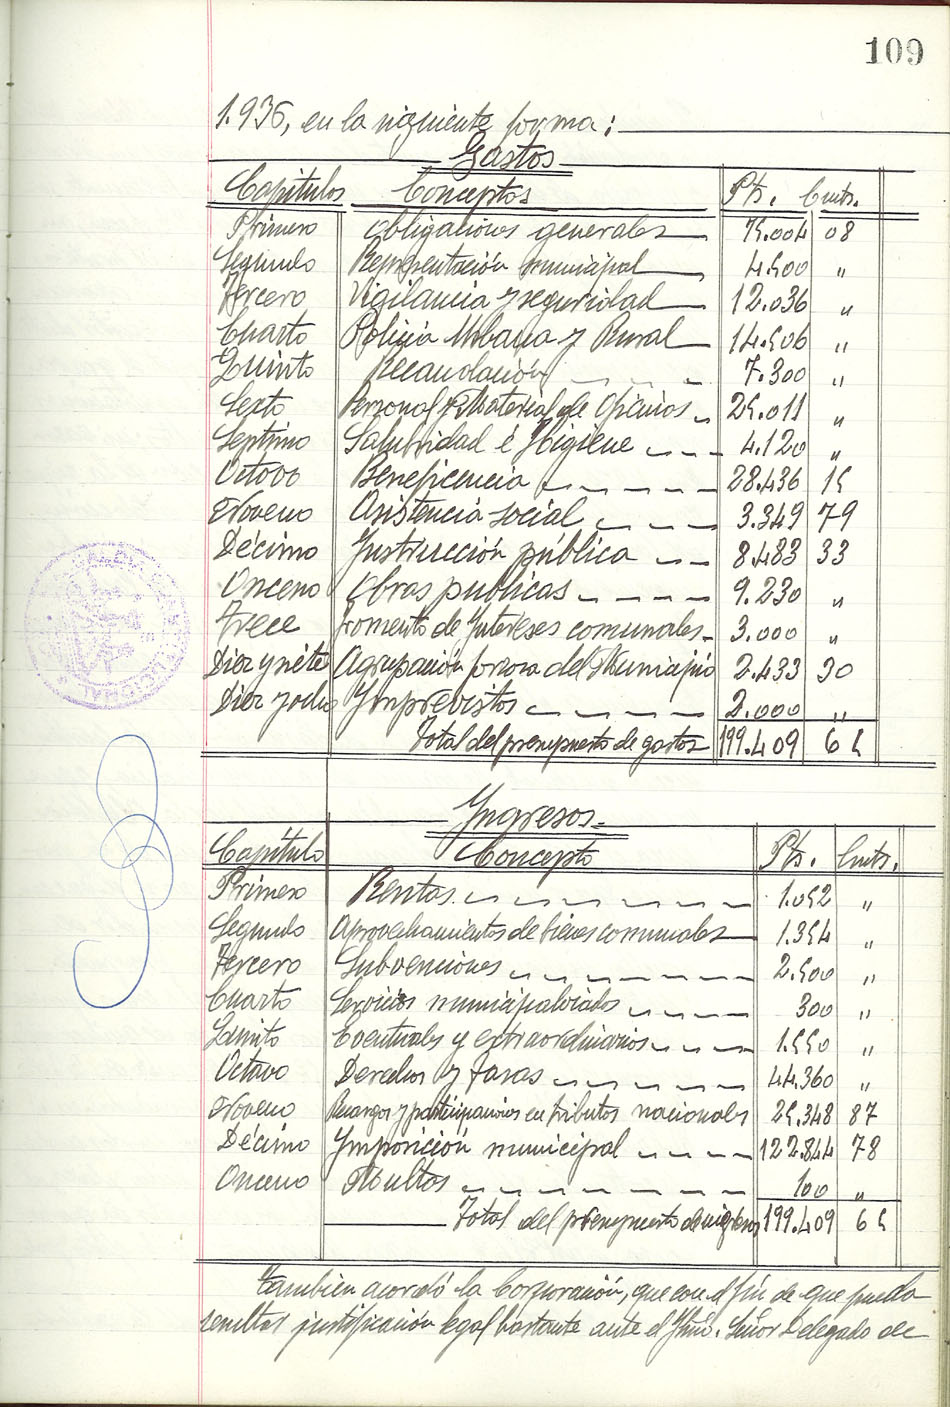 109
1.936, en la siguiente forma:
Gastos
Capitulos Conceptos Pts. Cnts.
Primero Obligaciones generales 75.004 08
Segundo Representación municipal 4.500 "
Tercero Vigilancia y seguridad 12.036 "
Cuarto Policia Urbana y Rural 14.506 "
Quinto Recaudación 7.300 "
Sexto Personal y Material de Oficinas 25.011 "
Septimo Salubridad é Higiene 4.120 "
Octavo Beneficencia 28.436 15
Noveno Asistencia social 3.349 79
Décimo Instrucción pública 8.483 33
Onceno Obras publicas 9.230 "
Trece Fomento de Intereses comunales 3.000 "
Diez y siete Agrupación forzosa del Municipio 2.433 30
Diez y ocho Imprevistos 2.000 "
Total del presupuesto de gastos 199.409 65
Ingresos.
Capítulo Concepto Pts. Cnts.
Primero Rentas. 1.052 "
Segundo Aprovechamientos de bienes comunales 1.354 "
Tercero Subvenciones 2.500 "
Cuarto Servicios municipalizados 300 "
Quinto Eventuales y extraordinarios 1.550 "
Octavo Derechos y tasas 44.360 "
Noveno Recargos y participaciones en tributos nacionales 25.348 87
Décimo Imposición municipal 122.844 78
Onceno Multas 100 "
Total del presupuesto de ingresos 199.409 65
Tambien acordó la Corporación, que con el fín de que pueda
resultar justificación legal bastante ante el Iltmo. Señor Delegado de